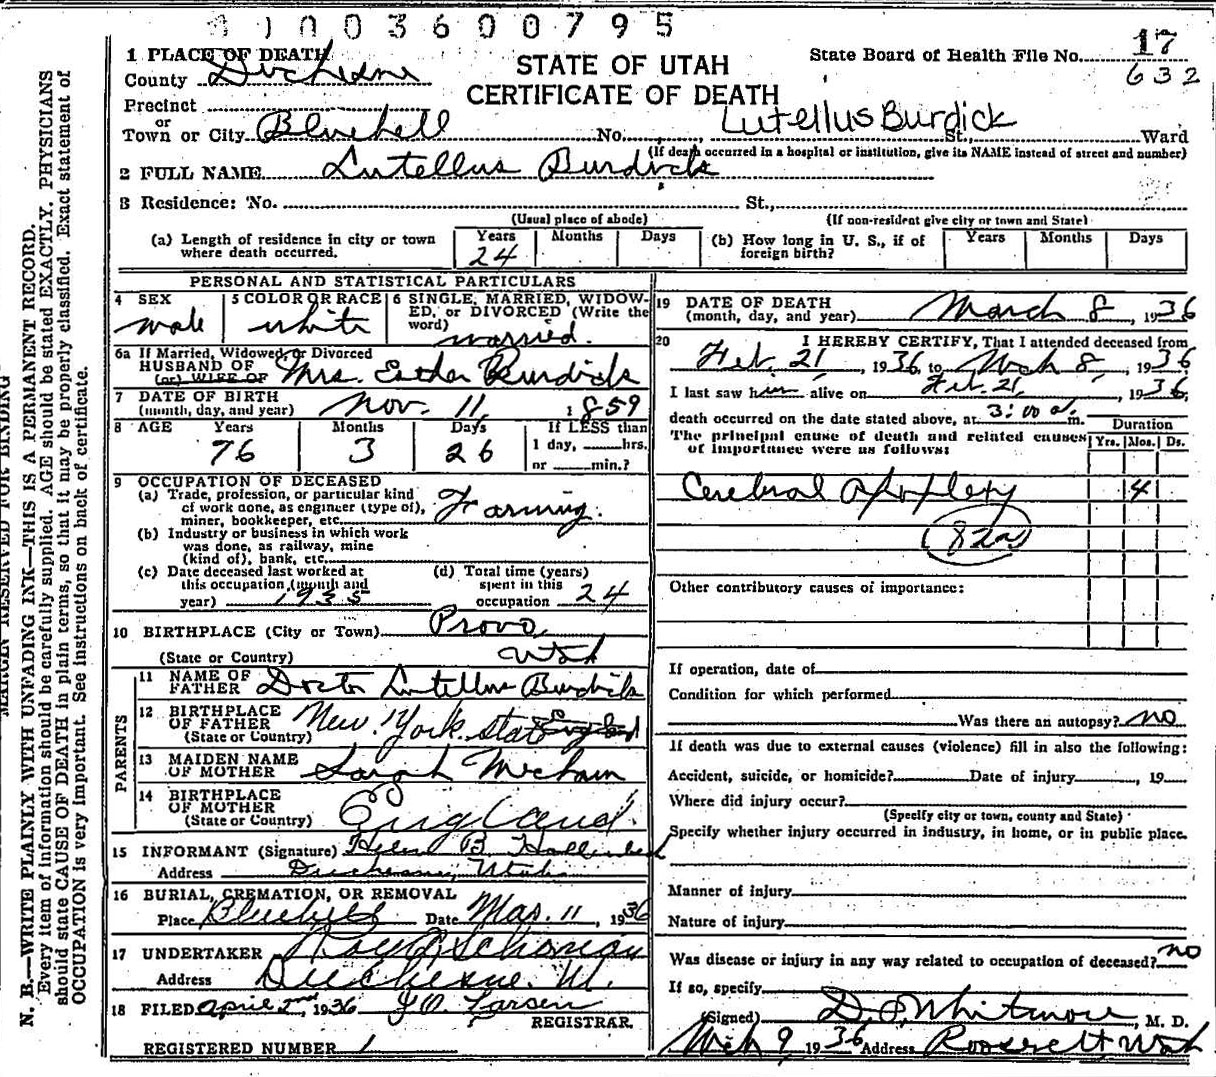 0100360 0795
1 PLACE OF DEATH
County Duchesne
STATE OF UTAH
CERTIFICATE OF DEATH
State Board of Health File No. 17
632
Precinct
or
Town or City Bluebell No. Lutellus Burdick St., Ward
(If death occurred in a hospital or institution, give its NAME instead of street and number)
2 FULL NAME Lutellus Burdick
3 Residence: No. St.,
(Usual place of abode) (If non-resident give city or town and State)
(a) Length of residence in city or town where death occurred. Years 24 Months Days
(b) How long in U. S., if of foreign birth? Years Months Days
PERSONAL AND STATISTICAL PARTICULARS
4 SEX male
5 COLOR OR RACE white
6 SINGLE, MARRIED, WIDOWED, or DIVORCED (Write the word) married.
6a If Married, Widowed, or Divorced
HUSBAND OF Mrs. Esther Burdick
(or) WIFE OF
7 DATE OF BIRTH
(month, day, and year) Nov. 11, 1859
8 AGE Years 76 Months 3 Days 26 If LESS than 1 day, hrs. or min.?
9 OCCUPATION OF DECEASED
(a) Trade, profession, or particular kind of work done, as engineer (type of), miner, bookkeeper, etc. Farming.
(b) Industry or business in which work was done, as railway, mine (kind of), bank, etc.
(c) Date deceased last worked at this occupation, (month and year) 1935
(d) Total time (years) spent in this occupation 24
10 BIRTHPLACE (City or Town) Provo,
(State or Country) Utah
PARENTS
11 NAME OF FATHER Doctor Lutellus Burdick
12 BIRTHPLACE OF FATHER (State or Country) New York state England
13 MAIDEN NAME OF MOTHER Sarah Mecham
14 BIRTHPLACE OF MOTHER (State or Country) England.
15 INFORMANT (Signature) Helen B. Hallenbeck
Address Duchesne, Utah
16 BURIAL, CREMATION, OR REMOVAL
Place Bluebell Date Mar. 11, 1936
17 UNDERTAKER Roy
Address Duchesne. Ut.
18 FILED April 2nd, 1936 J. O. Larsen
REGISTRAR.
REGISTERED NUMBER 1
19 DATE OF DEATH
(month, day, and year) March 8, 1936
20 I HEREBY CERTIFY, That I attended deceased from
Feb. 21, 1936, to Mch 8, 1936
I last saw him alive on Feb. 21, 1936,
death occurred on the date stated above, at 3:00 a. m.
The principal cause of death and related causes of importance were as follows:
Duration
Yrs. Mos. Ds.
Cerebral apoplexy 4
82a
Other contributory causes of importance:
If operation, date of
Condition for which performed
Was there an autopsy? no
If death was due to external causes (violence) fill in also the following:
Accident, suicide, or homicide? Date of injury , 19
Where did injury occur?
(Specify city or town, county and State)
Specify whether injury occurred in industry, in home, or in public place.
Manner of injury
Nature of injury
Was disease or injury in any way related to occupation of deceased? no
If so, specify
(Signed) Whitmore, M. D.
Mch 9, 1936 Address Roosevelt, Utah
MARGIN RESERVED FOR BINDING
N. B.—WRITE PLAINLY WITH UNFADING INK—THIS IS A PERMANENT RECORD.
Every item of information should be carefully supplied. AGE should be stated EXACTLY. PHYSICIANS
should state CAUSE OF DEATH in plain terms, so that it may be properly classified. Exact statement of
OCCUPATION is very important. See instructions on back of certificate.